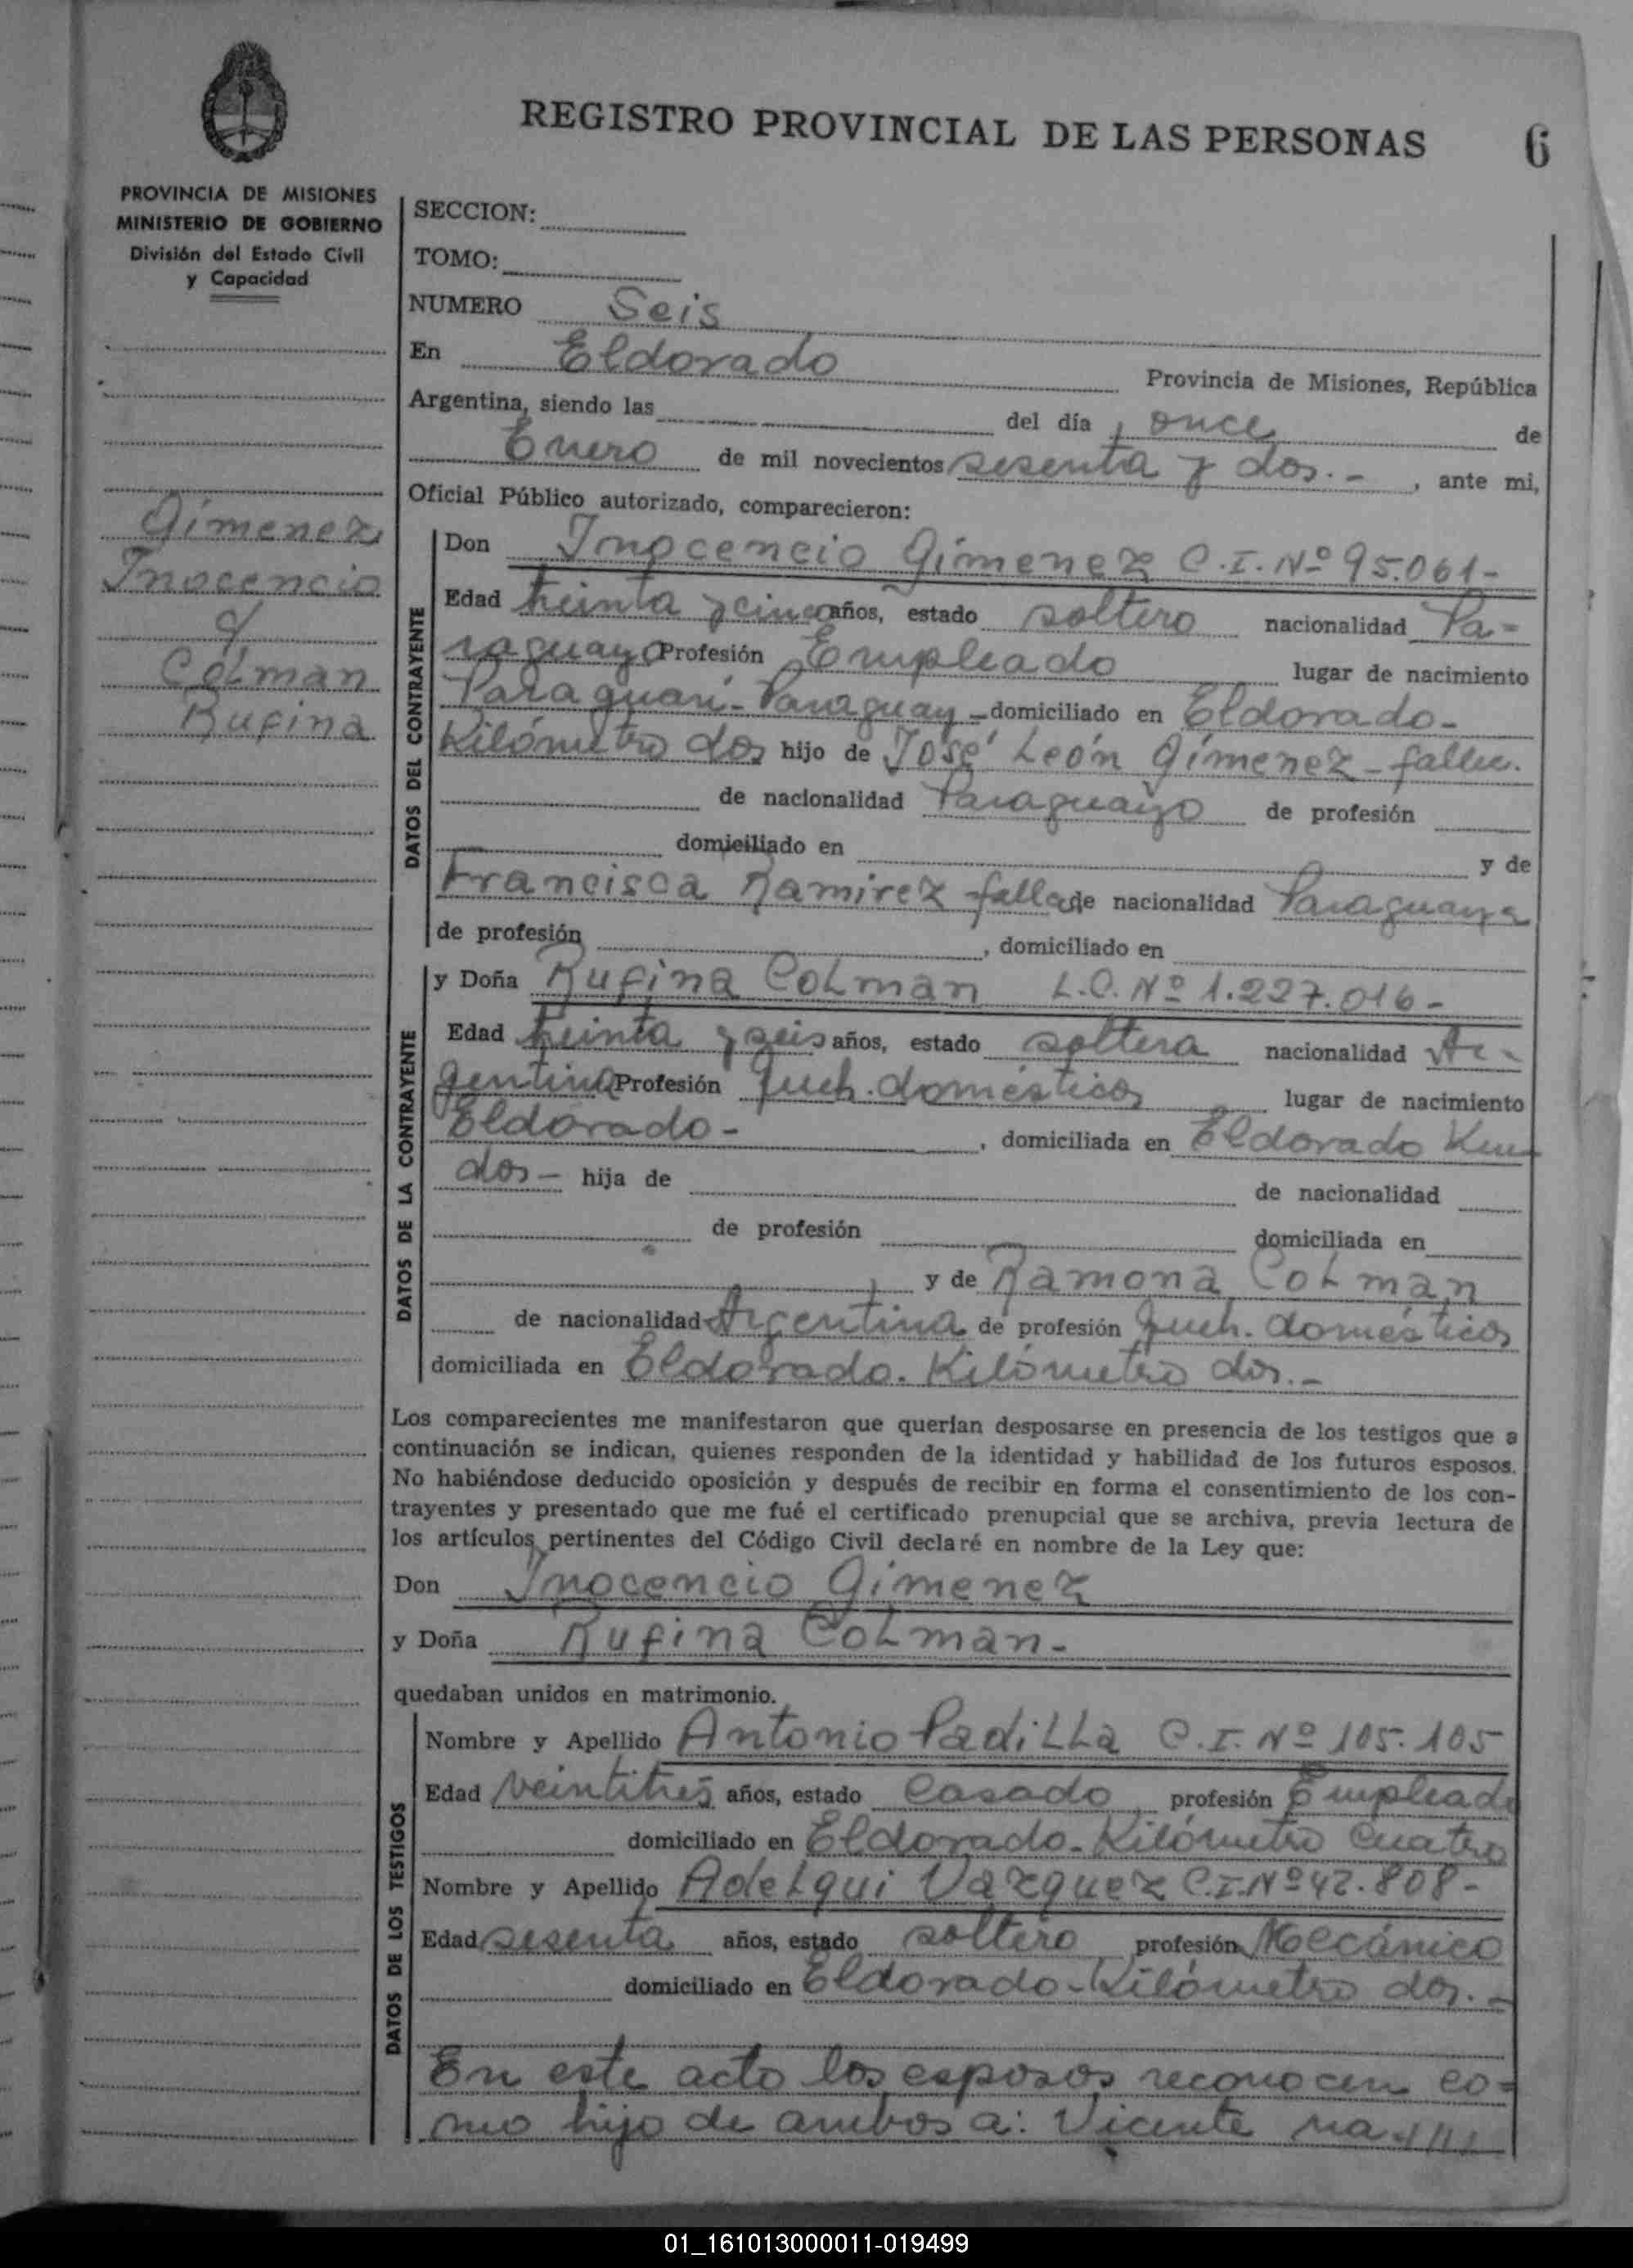 REGISTRO PROVINCIAL DE LAS PERSONAS 6
PROVINCIA DE MISIONES
MINISTERIO DE GOBIERNO
División del Estado Civil
y Capacidad
Gimenez
Inocencio
y
Colman
Rufina
SECCION:
TOMO:
NUMERO Seis
En Eldorado Provincia de Misiones, República
Argentina, siendo las del día once de
Enero de mil novecientos sesenta y dos.- , ante mi,
Oficial Público autorizado, comparecieron:
DATOS DEL CONTRAYENTE
Don Inocencio Gimenez C.I. Nº 95.061-
Edad treinta y cinco años, estado soltero nacionalidad Pa-
raguayo Profesión Empleado lugar de nacimiento
Paraguarí-Paraguay - domiciliado en Eldorado-
Kilómetro dos hijo de José León Gimenez - fallec.
de nacionalidad Paraguayo de profesión
domiciliado en y de
Francisca Ramirez -fallec. de nacionalidad Paraguaya
de profesión , domiciliado en
DATOS DE LA CONTRAYENTE
y Doña Rufina Colman L.C. Nº 1.227.016-
Edad treinta y seis años, estado soltera nacionalidad Ar-
gentina Profesión Queh. domésticos lugar de nacimiento
Eldorado- , domiciliada en Eldorado Km
dos- hija de de nacionalidad
de profesión domiciliada en
y de Ramona Colman
de nacionalidad Argentina de profesión Queh. domésticos
domiciliada en Eldorado. Kilómetro dos.-
Los comparecientes me manifestaron que querían desposarse en presencia de los testigos que a
continuación se indican, quienes responden de la identidad y habilidad de los futuros esposos.
No habiéndose deducido oposición y después de recibir en forma el consentimiento de los con-
trayentes y presentado que me fué el certificado prenupcial que se archiva, previa lectura de
los artículos pertinentes del Código Civil declaré en nombre de la Ley que:
Don Inocencio Gimenez
y Doña Rufina Colman-
quedaban unidos en matrimonio.
DATOS DE LOS TESTIGOS
Nombre y Apellido Antonio Padilla C.I. Nº 105.105
Edad veintitres años, estado casado profesión Empleado
domiciliado en Eldorado-Kilómetro cuatro
Nombre y Apellido Adelqui Vazquez C.I.Nº 42.808-
Edad sesenta años, estado soltero profesión Mecánico
domiciliado en Eldorado-Kilómetro dos.-
En este acto los esposos reconocen co-
mo hijo de ambos a: Vicente na-///
01_161013000011-019499